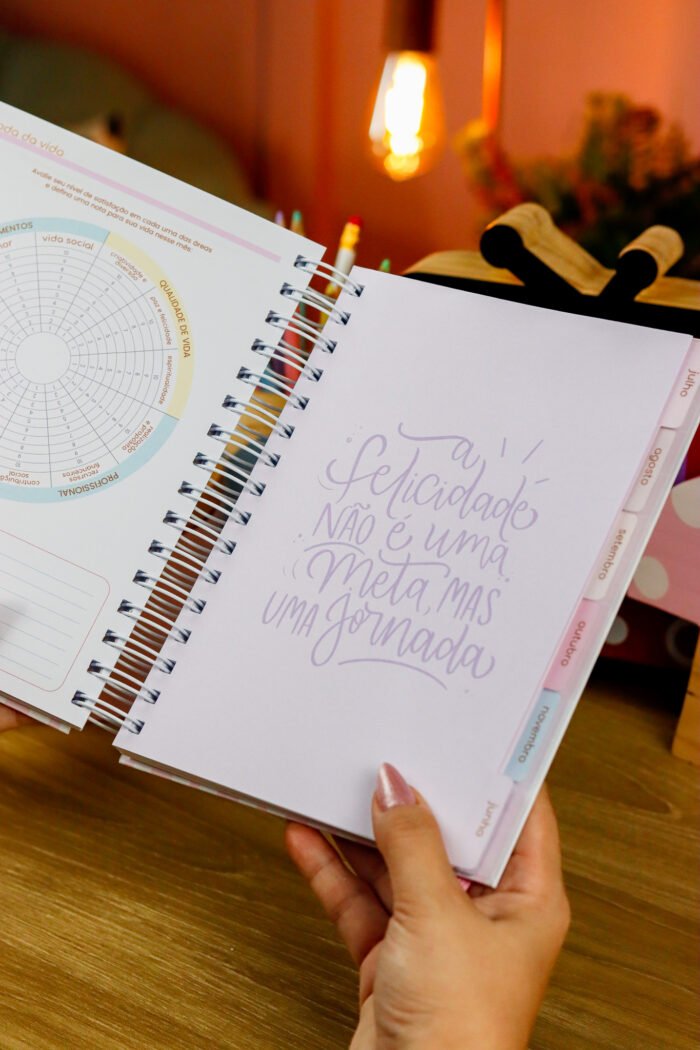 da vida
Avalie seu nível de satisfação em cada uma das áreas
e defina uma nota para sua vida nesse mês.
vida social
criatividade e
diversão
paz e felicidade
espiritualidade
QUALIDADE DE VIDA
realização
e propósito
recursos
financeiros
contribuição
social
PROFISSIONAL
a
felicidade
NÃO é uma
Meta, MAS
UMA jornada
julho
agosto
setembro
outubro
novembro
junho